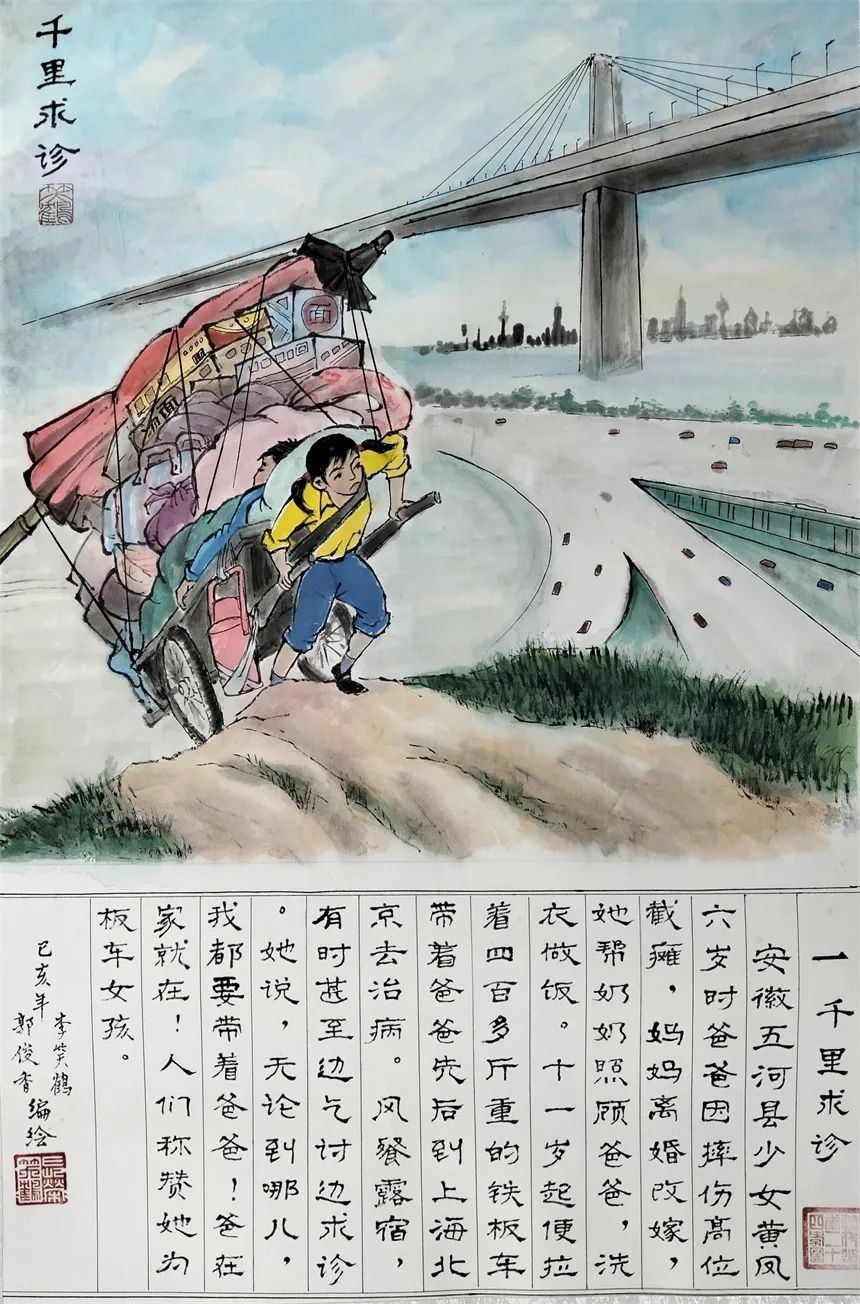 千里求诊
面
汤面
一千里求诊
安徽五河县少女黄凤
六岁时爸爸因摔伤高位
截瘫，妈妈离婚改嫁，
她帮奶奶照顾爸爸，洗
衣做饭。十一岁起便拉
着四百多斤重的铁板车
带着爸爸先后到上海北
京去治病。风餐露宿，
有时甚至边乞讨边求诊
。她说，无论到哪儿，
我都要带着爸爸！爸在
家就在！人们称赞她为
板车女孩。
己亥年 李笑鹤
郭俊香 编绘